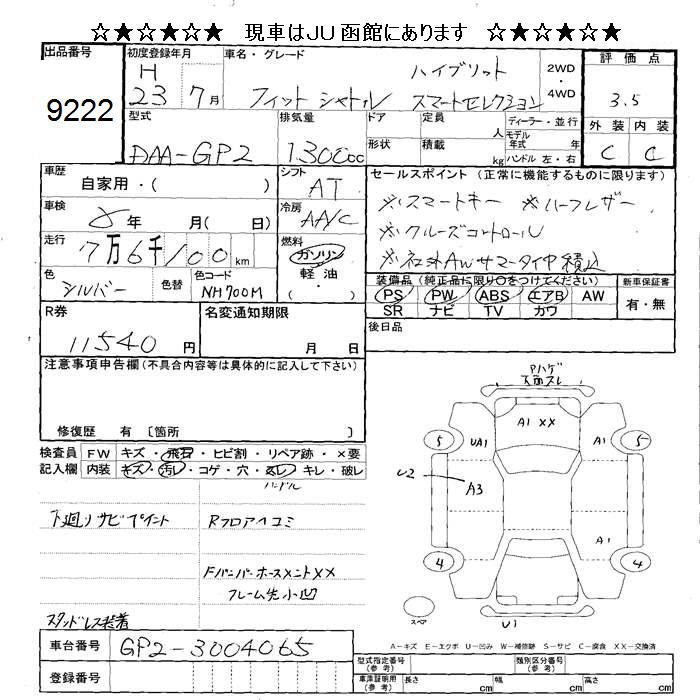 ☆★☆★☆★ 現車はJU函館にあります ☆★☆★☆★
出品番号 9222
初度登録年月 H 23年 7月
車名・グレード フィットシャトル ハイブリット スマートセレクション
2WD・4WD
評価点 3.5
外装 C 内装 C
型式 DAA-GP2
排気量 1300cc
ドア 形状
定員 人
積載 kg
ディーラー・並行
モデル年式 年
ハンドル 左・右
車歴 自家用・( )
シフト AT
セールスポイント (正常に機能するものに限ります)
※スマートキー ※ハーフレザー
※クルーズコントロール
※社外AWサマータイヤ積込
車検 年 月( 日)
冷房 AA/C
走行 7万6千100km
燃料 ガソリン・軽油・( )
色 シルバー
色替
色コード NH700M
装備品 (純正品に限り○をつけてください)
PS PW ABS エアB AW
SR ナビ TV カワ
新車保証書 有・無
R券 11540円
名変通知期限 月 日
後日品
注意事項申告欄 (不具合内容等は具体的に記入して下さい)
修復歴 有 〔箇所 〕
検査員記入欄
FW キズ・飛石・ヒビ割・リペア跡・×要
内装 キズ・汚レ・コゲ・穴・スレ・キレ・破レ
ハンドル
下廻りサビペイント
Rフロアヘコミ
Fバンパーホースメント××
フレーム先小凹
スタッドレス装着
Aハゲ
下面スレ
A1 ××
5 UA1 A1 5
U2 A3
A1
4 4
スペア U1
A-キズ E-エクボ U-凹み W-補修跡 S-サビ C-腐食 XX-交換済
車台番号 GP2-3004065
登録番号
型式指定番号(参考)
類別区分番号(参考)
車庫証明用(参考) 長さ cm 幅 cm 高さ cm